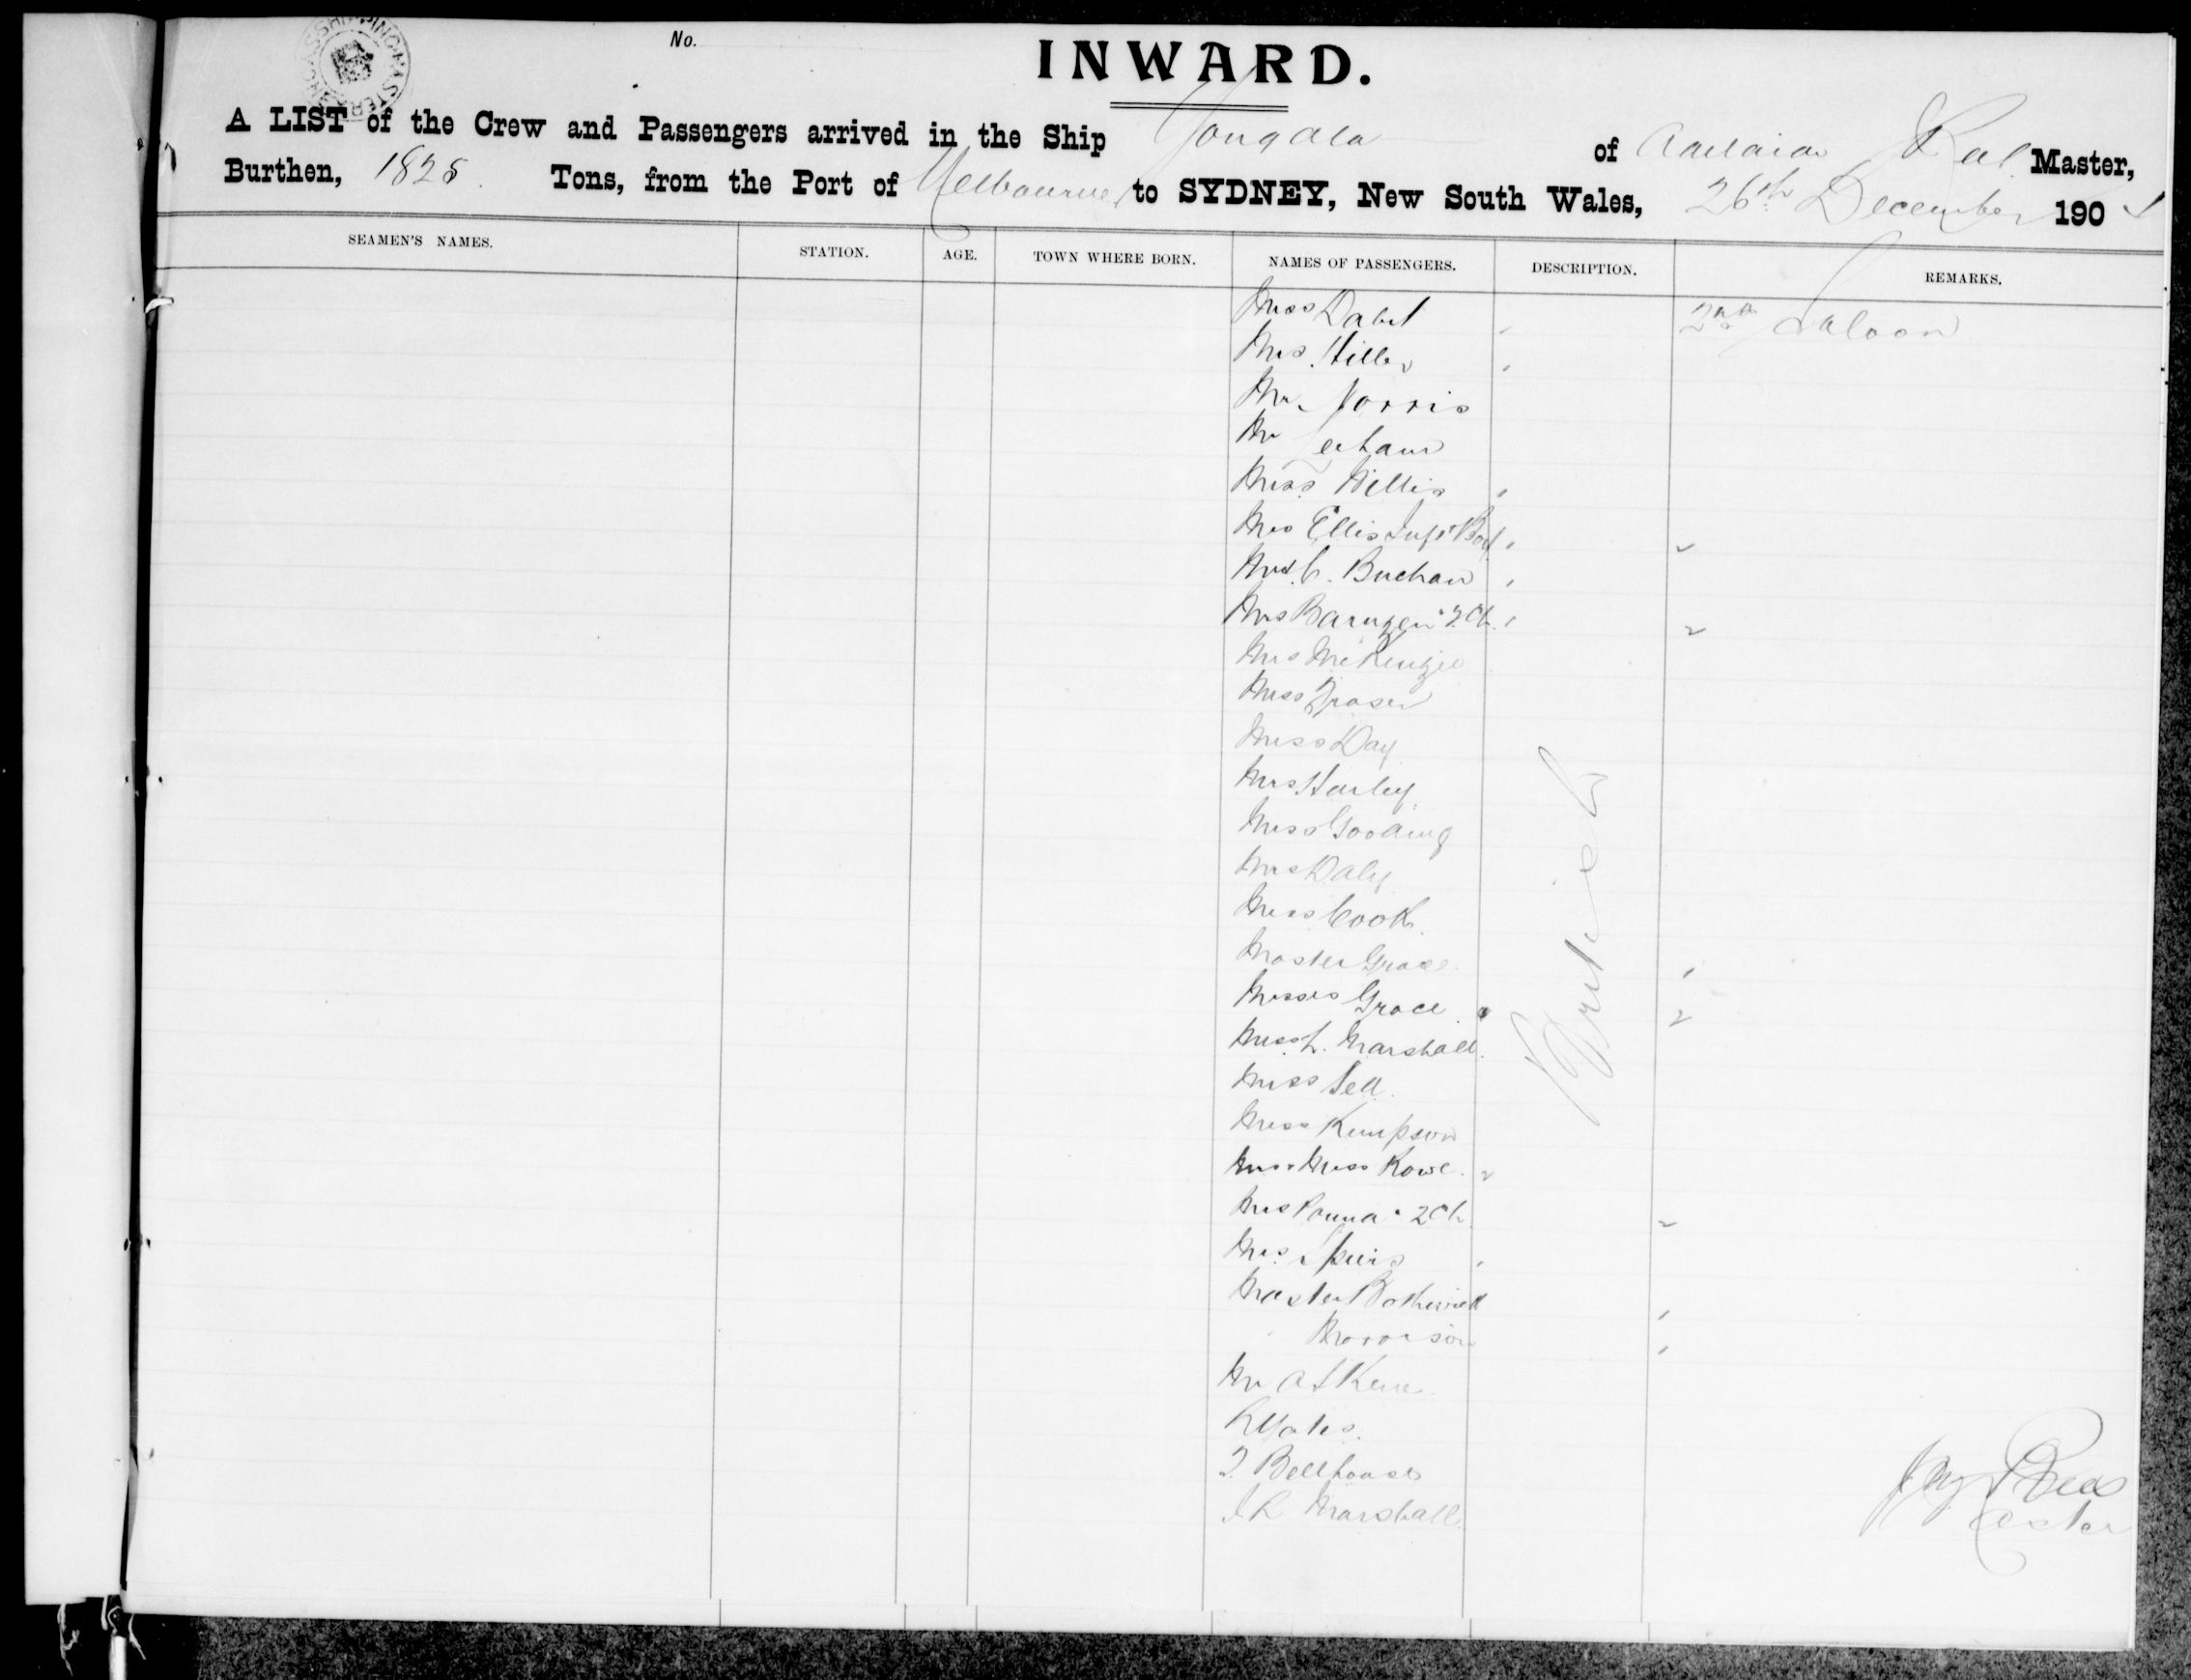 No.
INWARD.
A LIST of the Crew and Passengers arrived in the Ship Yongala of Adelaide Rees Master,
Burthen, 1825 Tons, from the Port of Melbourne to SYDNEY, New South Wales, 26th December 190
SEAMEN'S NAMES. STATION. AGE. TOWN WHERE BORN. NAMES OF PASSENGERS. DESCRIPTION. REMARKS.
Miss 2nd Saloon
Mrs Hiller
Mr Norris
Mr
Miss Willis
Mrs Ellis Inft
Mrs C. Buchan
Mrs 2 Ch.
Mrs McKenzie
Miss Fraser
Miss Day
Mrs Harley
Miss Gooding
Mrs Daly
Miss Cook
Master Grace
Misses Grace 2
Miss L. Marshall
Miss Sell
Miss Kempson
Miss Rowe 2
Mrs 2 Ch 2
Mrs Speirs
Master
Morrison
Mr
R Yates.
Bellhouse
J R Marshall
British
Rees
Master